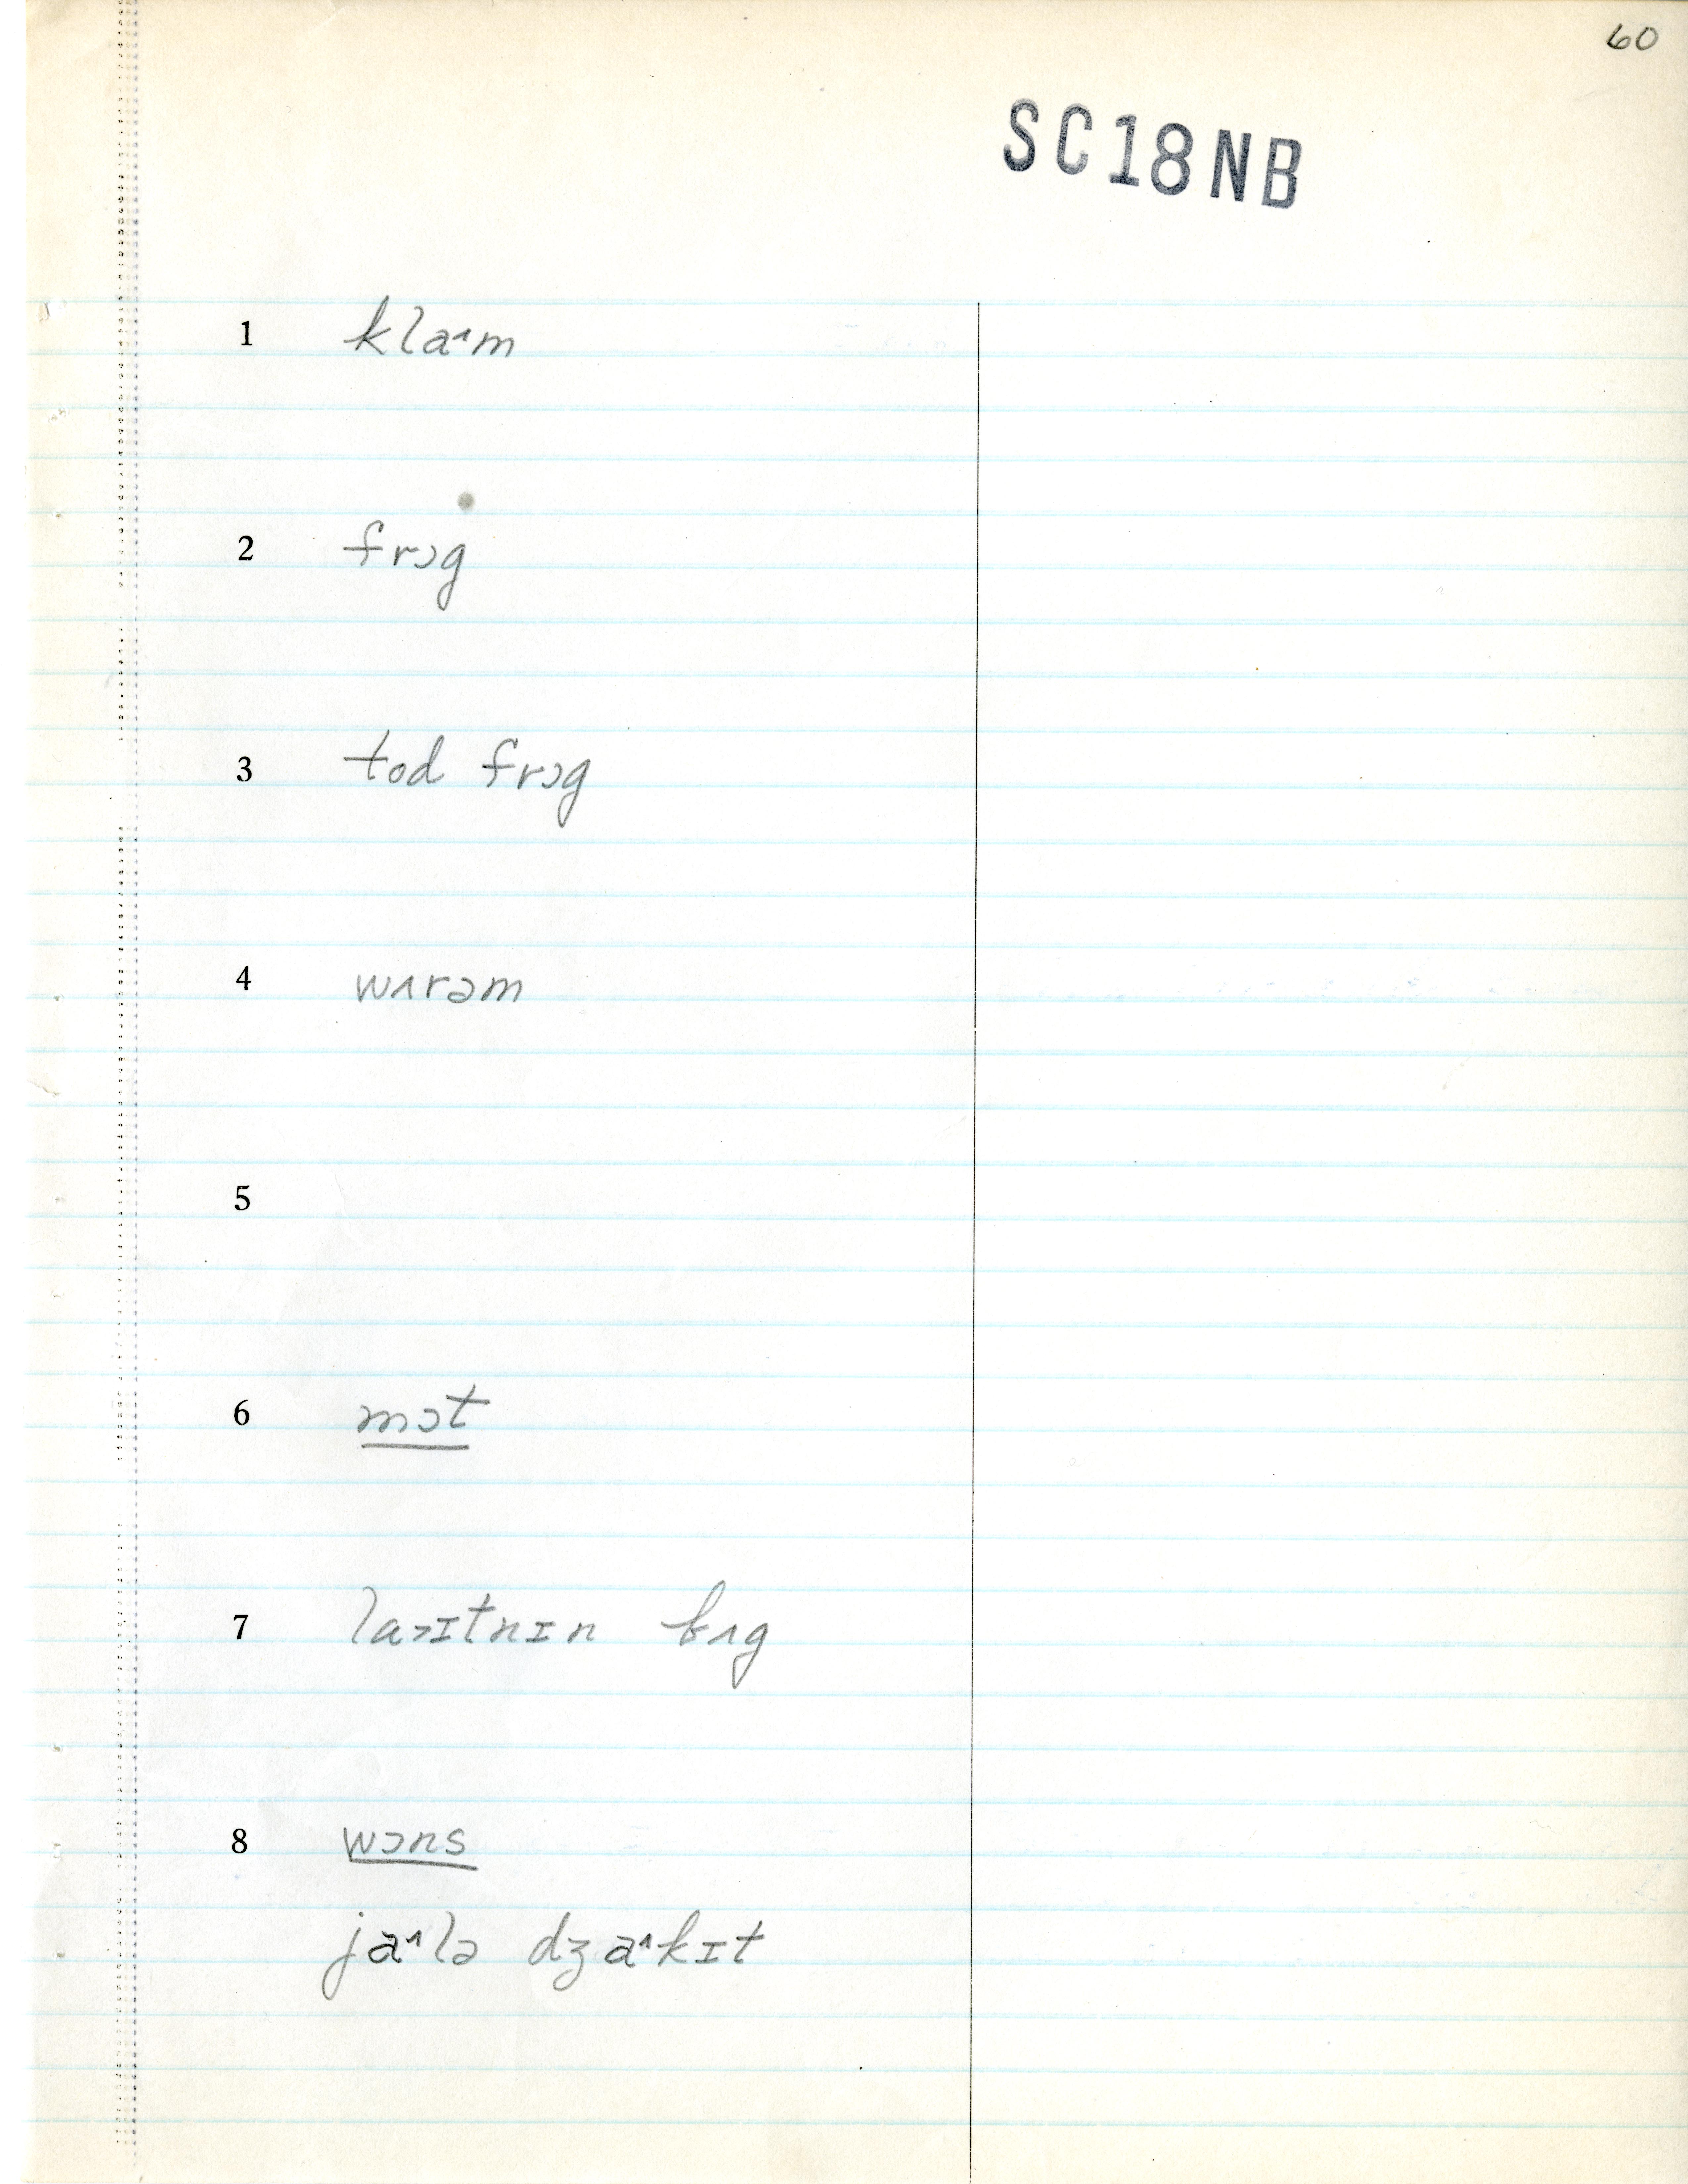 60
SC18NB
1 kla˄m
2 frɔg
3 tod frɔg
4 wʌrəm
5
6 mɔt
7 la˃ɪtnɪn bʌg
8 wɔns
ja˄lə dʒa˄kɪt